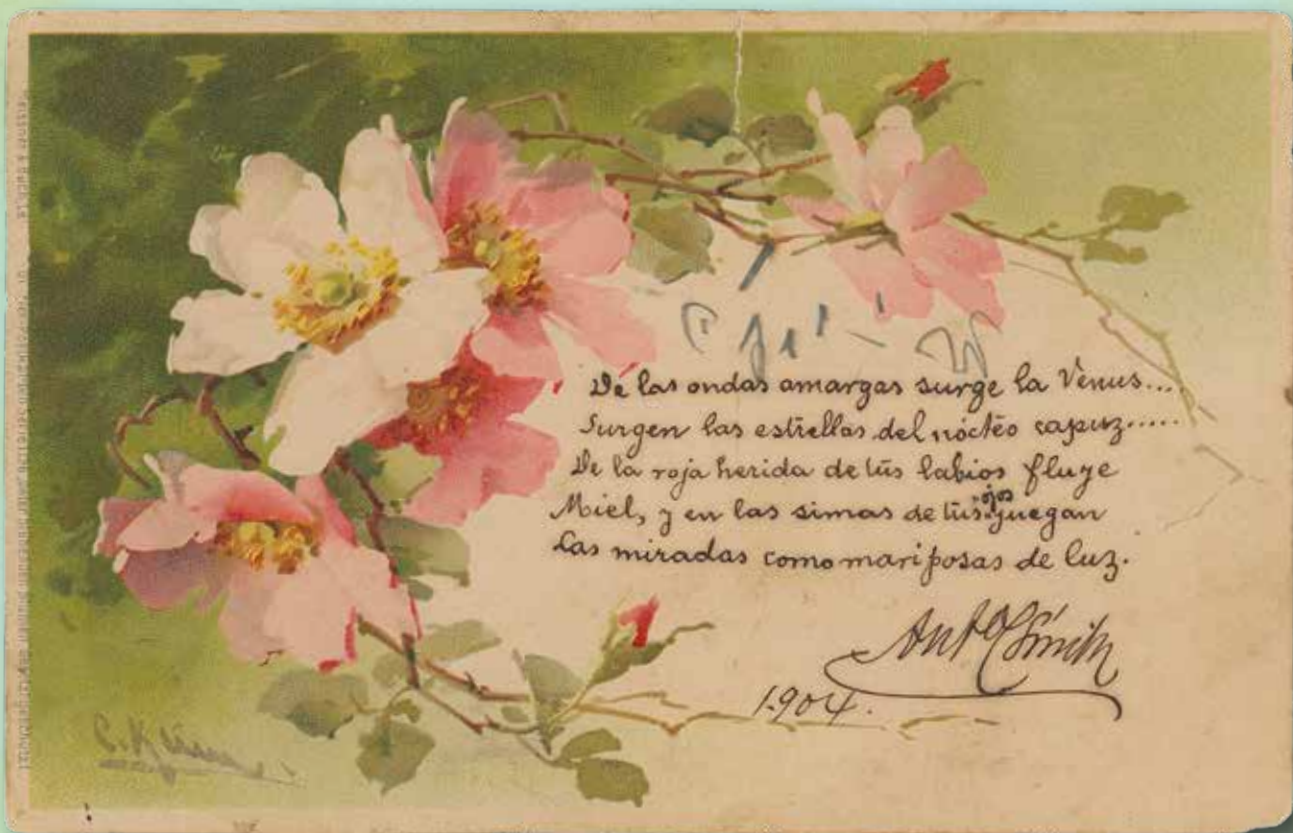 De las ondas amargas surge la Vénus...
Surgen las estrellas del nócteo capuz.....
De la roja herida de tus labios fluye
Miel, y en las simas de tus ojos juegan
Las miradas como mariposas de luz.
Anto Smith
1904.
C. Klein